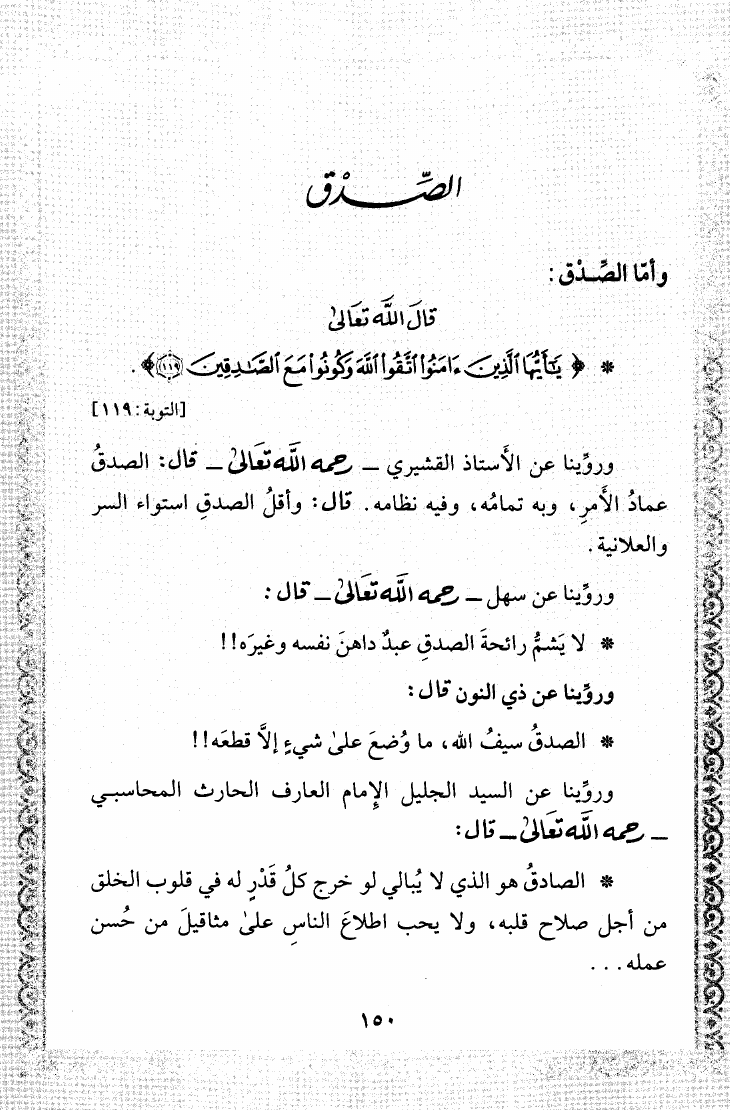 الصِّـدْق
وأمّا الصِّـدْق :
قالَ اللَّه تعَالىٰ
* ﴿ يَٰٓأَيُّهَا ٱلَّذِينَ ءَامَنُوا۟ ٱتَّقُوا۟ ٱللَّهَ وَكُونُوا۟ مَعَ ٱلصَّٰدِقِينَ ﴿١١٩﴾ ﴾ .
[التوبة : ١١٩]
وروِّينا عن الأَستاذ القشيري – رحمه اللَّه تعَالىٰ – قال : الصدقُ
عمادُ الأَمرِ، وبه تمامُه، وفيه نظامه. قال : وأقلُ الصدقِ استواء السر
والعلانية .
وروِّينا عن سهل – رحمه اللَّه تعَالىٰ – قال :
* لا يَشمُّ رائحةَ الصدقِ عبدٌ داهنَ نفسه وغيرَه!!
وروِّينا عن ذي النون قال :
* الصدقُ سيفُ الله، ما وُضعَ علىٰ شيءٍ إلاَّ قطعَه!!
وروِّينا عن السيد الجليل الإِمام العارف الحارث المحاسبـي
– رحمه اللَّه تعَالىٰ – قال :
* الصادقُ هو الذي لا يُبالي لو خرج كلُ قَدْرٍ له في قلوب الخلق
من أجل صلاح قلبه، ولا يحب اطلاعَ الناسِ علىٰ مثاقيلَ من حُسن
عمله . . .
١٥٠